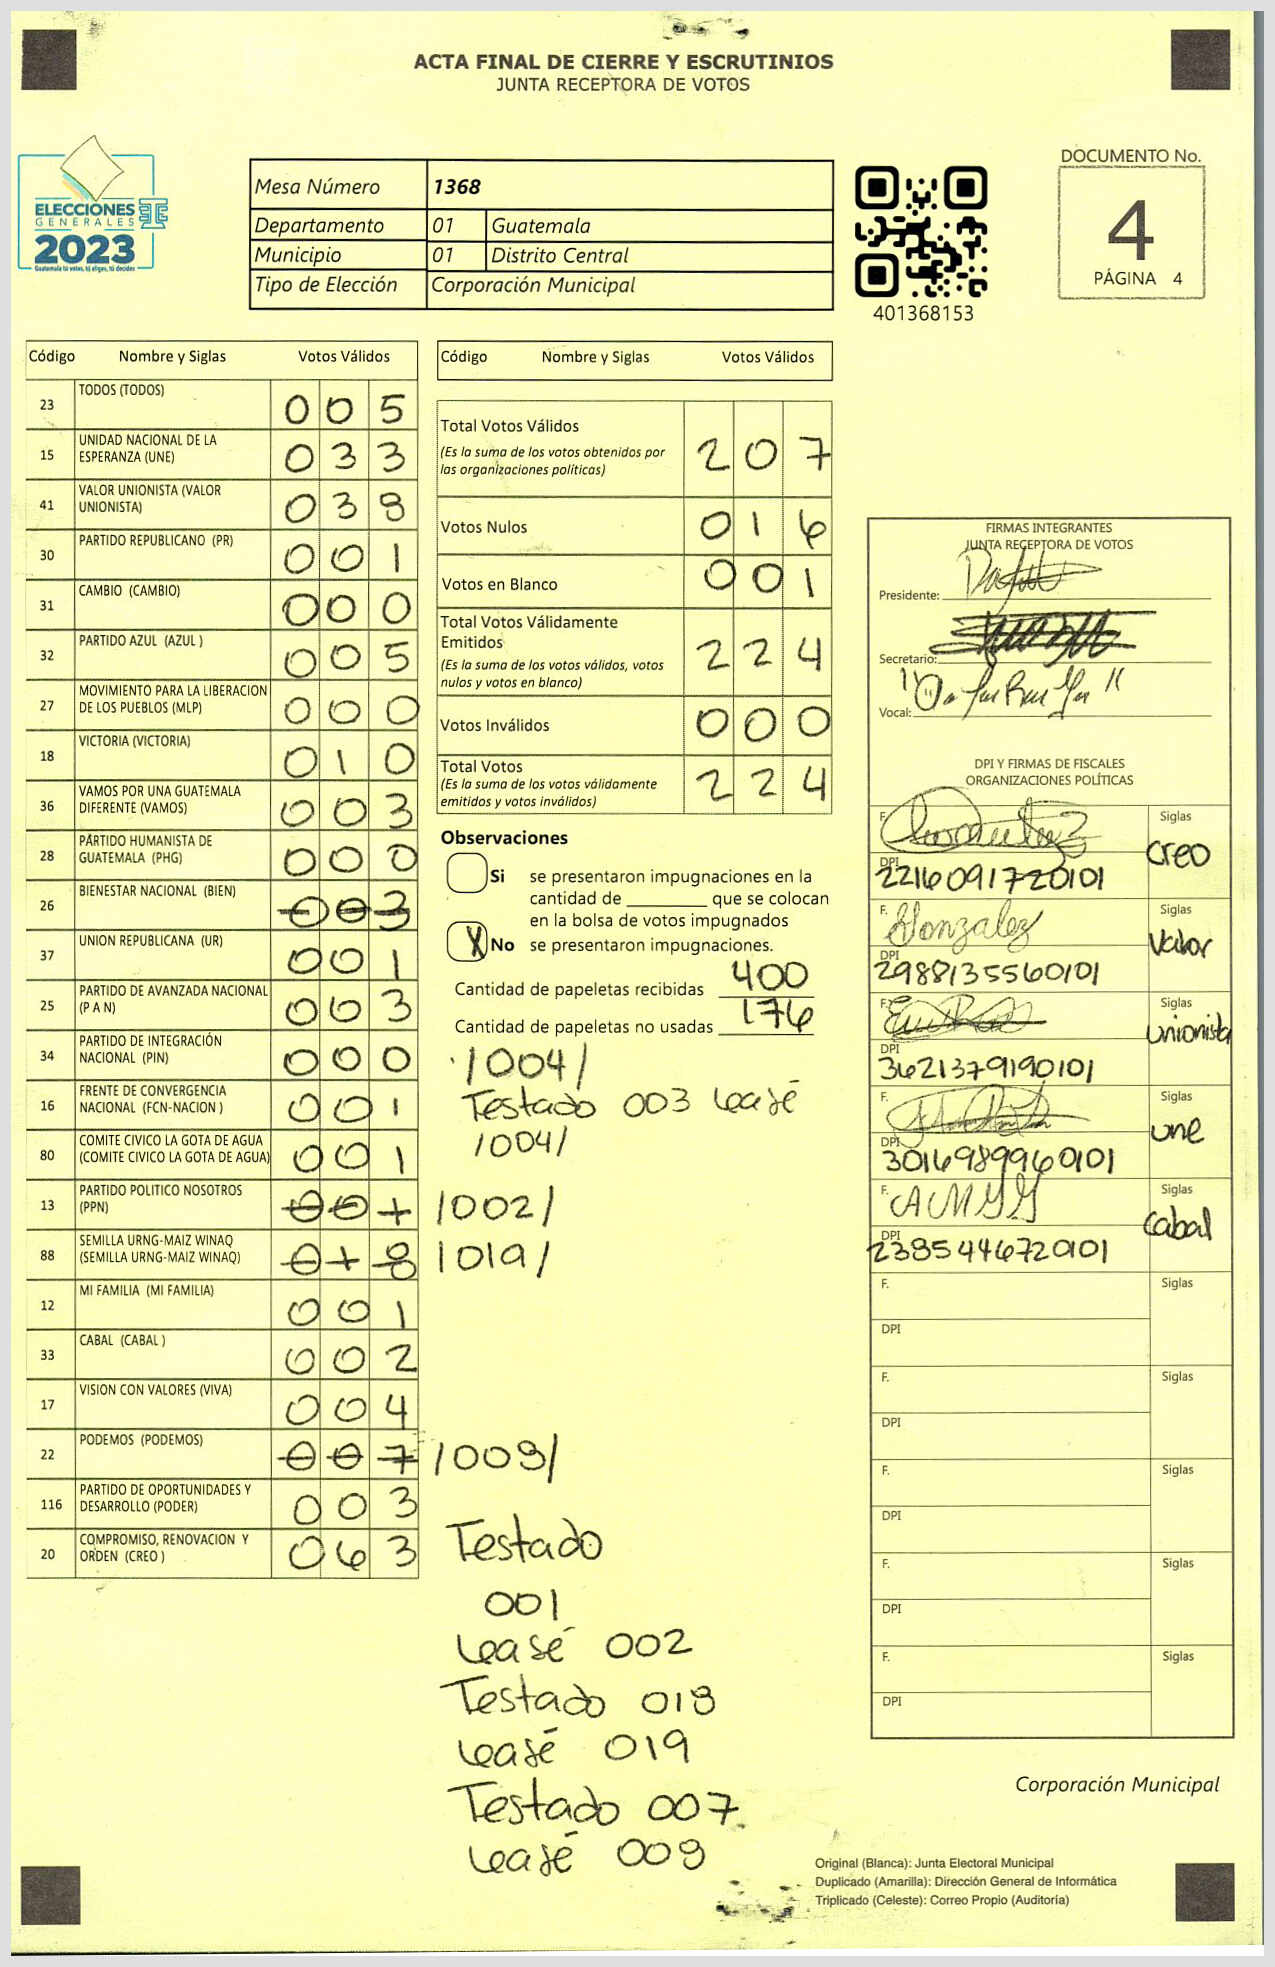 ACTA FINAL DE CIERRE Y ESCRUTINIOS
JUNTA RECEPTORA DE VOTOS
ELECCIONES
GENERALES
2023
Guatemala tú votas, tú eliges, tú decides
Mesa Número 1368
Departamento 01 Guatemala
Municipio 01 Distrito Central
Tipo de Elección Corporación Municipal
401368153
DOCUMENTO No.
4
PÁGINA 4
Código Nombre y Siglas Votos Válidos
23 TODOS (TODOS) 005
15 UNIDAD NACIONAL DE LA ESPERANZA (UNE) 033
41 VALOR UNIONISTA (VALOR UNIONISTA) 038
30 PARTIDO REPUBLICANO (PR) 001
31 CAMBIO (CAMBIO) 000
32 PARTIDO AZUL (AZUL ) 005
27 MOVIMIENTO PARA LA LIBERACION DE LOS PUEBLOS (MLP) 000
18 VICTORIA (VICTORIA) 010
36 VAMOS POR UNA GUATEMALA DIFERENTE (VAMOS) 003
28 PARTIDO HUMANISTA DE GUATEMALA (PHG) 000
26 BIENESTAR NACIONAL (BIEN) 003
37 UNION REPUBLICANA (UR) 001
25 PARTIDO DE AVANZADA NACIONAL (P A N) 003
34 PARTIDO DE INTEGRACIÓN NACIONAL (PIN) 000
16 FRENTE DE CONVERGENCIA NACIONAL (FCN-NACION ) 001
80 COMITE CIVICO LA GOTA DE AGUA (COMITE CIVICO LA GOTA DE AGUA) 001
13 PARTIDO POLITICO NOSOTROS (PPN) 001 /002/
88 SEMILLA URNG-MAIZ WINAQ (SEMILLA URNG-MAIZ WINAQ) 018 /019/
12 MI FAMILIA (MI FAMILIA) 001
33 CABAL (CABAL ) 002
17 VISION CON VALORES (VIVA) 004
22 PODEMOS (PODEMOS) 007 /008/
116 PARTIDO DE OPORTUNIDADES Y DESARROLLO (PODER) 003
20 COMPROMISO, RENOVACION Y ORDEN (CREO ) 063
Código Nombre y Siglas Votos Válidos
Total Votos Válidos 207
(Es la suma de los votos obtenidos por
las organizaciones políticas)
Votos Nulos 016
Votos en Blanco 001
Total Votos Válidamente
Emitidos 224
(Es la suma de los votos válidos, votos
nulos y votos en blanco)
Votos Inválidos 000
Total Votos 224
(Es la suma de los votos válidamente
emitidos y votos inválidos)
Observaciones
Si se presentaron impugnaciones en la
cantidad de ________ que se colocan
en la bolsa de votos impugnados
X No se presentaron impugnaciones.
Cantidad de papeletas recibidas 400
Cantidad de papeletas no usadas 176
/004/
Testado 003 Leasé
/004/
Testado
001
Leasé 002
Testado 018
Leasé 019
Testado 007
Leasé 008
FIRMAS INTEGRANTES
JUNTA RECEPTORA DE VOTOS
Presidente:
Secretario:
Vocal:
DPI Y FIRMAS DE FISCALES
ORGANIZACIONES POLÍTICAS
F. Siglas
DPI 2216091720101 Creo
F. Gonzalez Siglas
DPI 2988135560101 Valor
F. Siglas
DPI 3621379190101 unionista
F. Siglas
DPI 3016989960101 une
F. Siglas
DPI 2385446720101 Cabal
F. Siglas
DPI
F. Siglas
DPI
F. Siglas
DPI
F. Siglas
DPI
F. Siglas
DPI
Corporación Municipal
Original (Blanca): Junta Electoral Municipal
Duplicado (Amarilla): Dirección General de Informática
Triplicado (Celeste): Correo Propio (Auditoría)